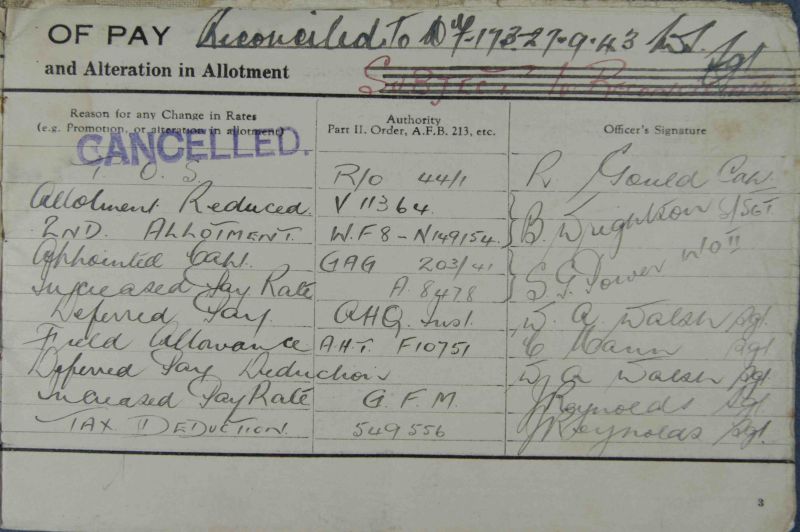 OF PAY Reconciled to 173-27-9-43 Sgt
and Alteration in Allotment SUBJECT to
Reason for any Change in Rates Authority Officer's Signature
(e.g. Promotion, or alteration in allotment) Part II. Order, A.F.B. 213, etc.
CANCELLED.
T. O. S R/O 44/1 R. Gould Capt.
Allotment Reduced. V 11364. B. Wrightson S/SGT
2ND. ALLOTMENT. W.F 8 - N149154.
Appointed GAG 203/41 S. G. Power W/O II
Increased Pay Rate A. 8478
Deferred Pay. AHQ. Inst. W. A. Walsh Sgt.
Field Allowance A.H.T. F10751 Mann Sgt
Deferred Pay Deduction W. A. Walsh Sgt.
Increased Pay Rate G. F. M. J Reynolds Sgt.
TAX DEDUCTION. 549556 J Reynolds Sgt.
3